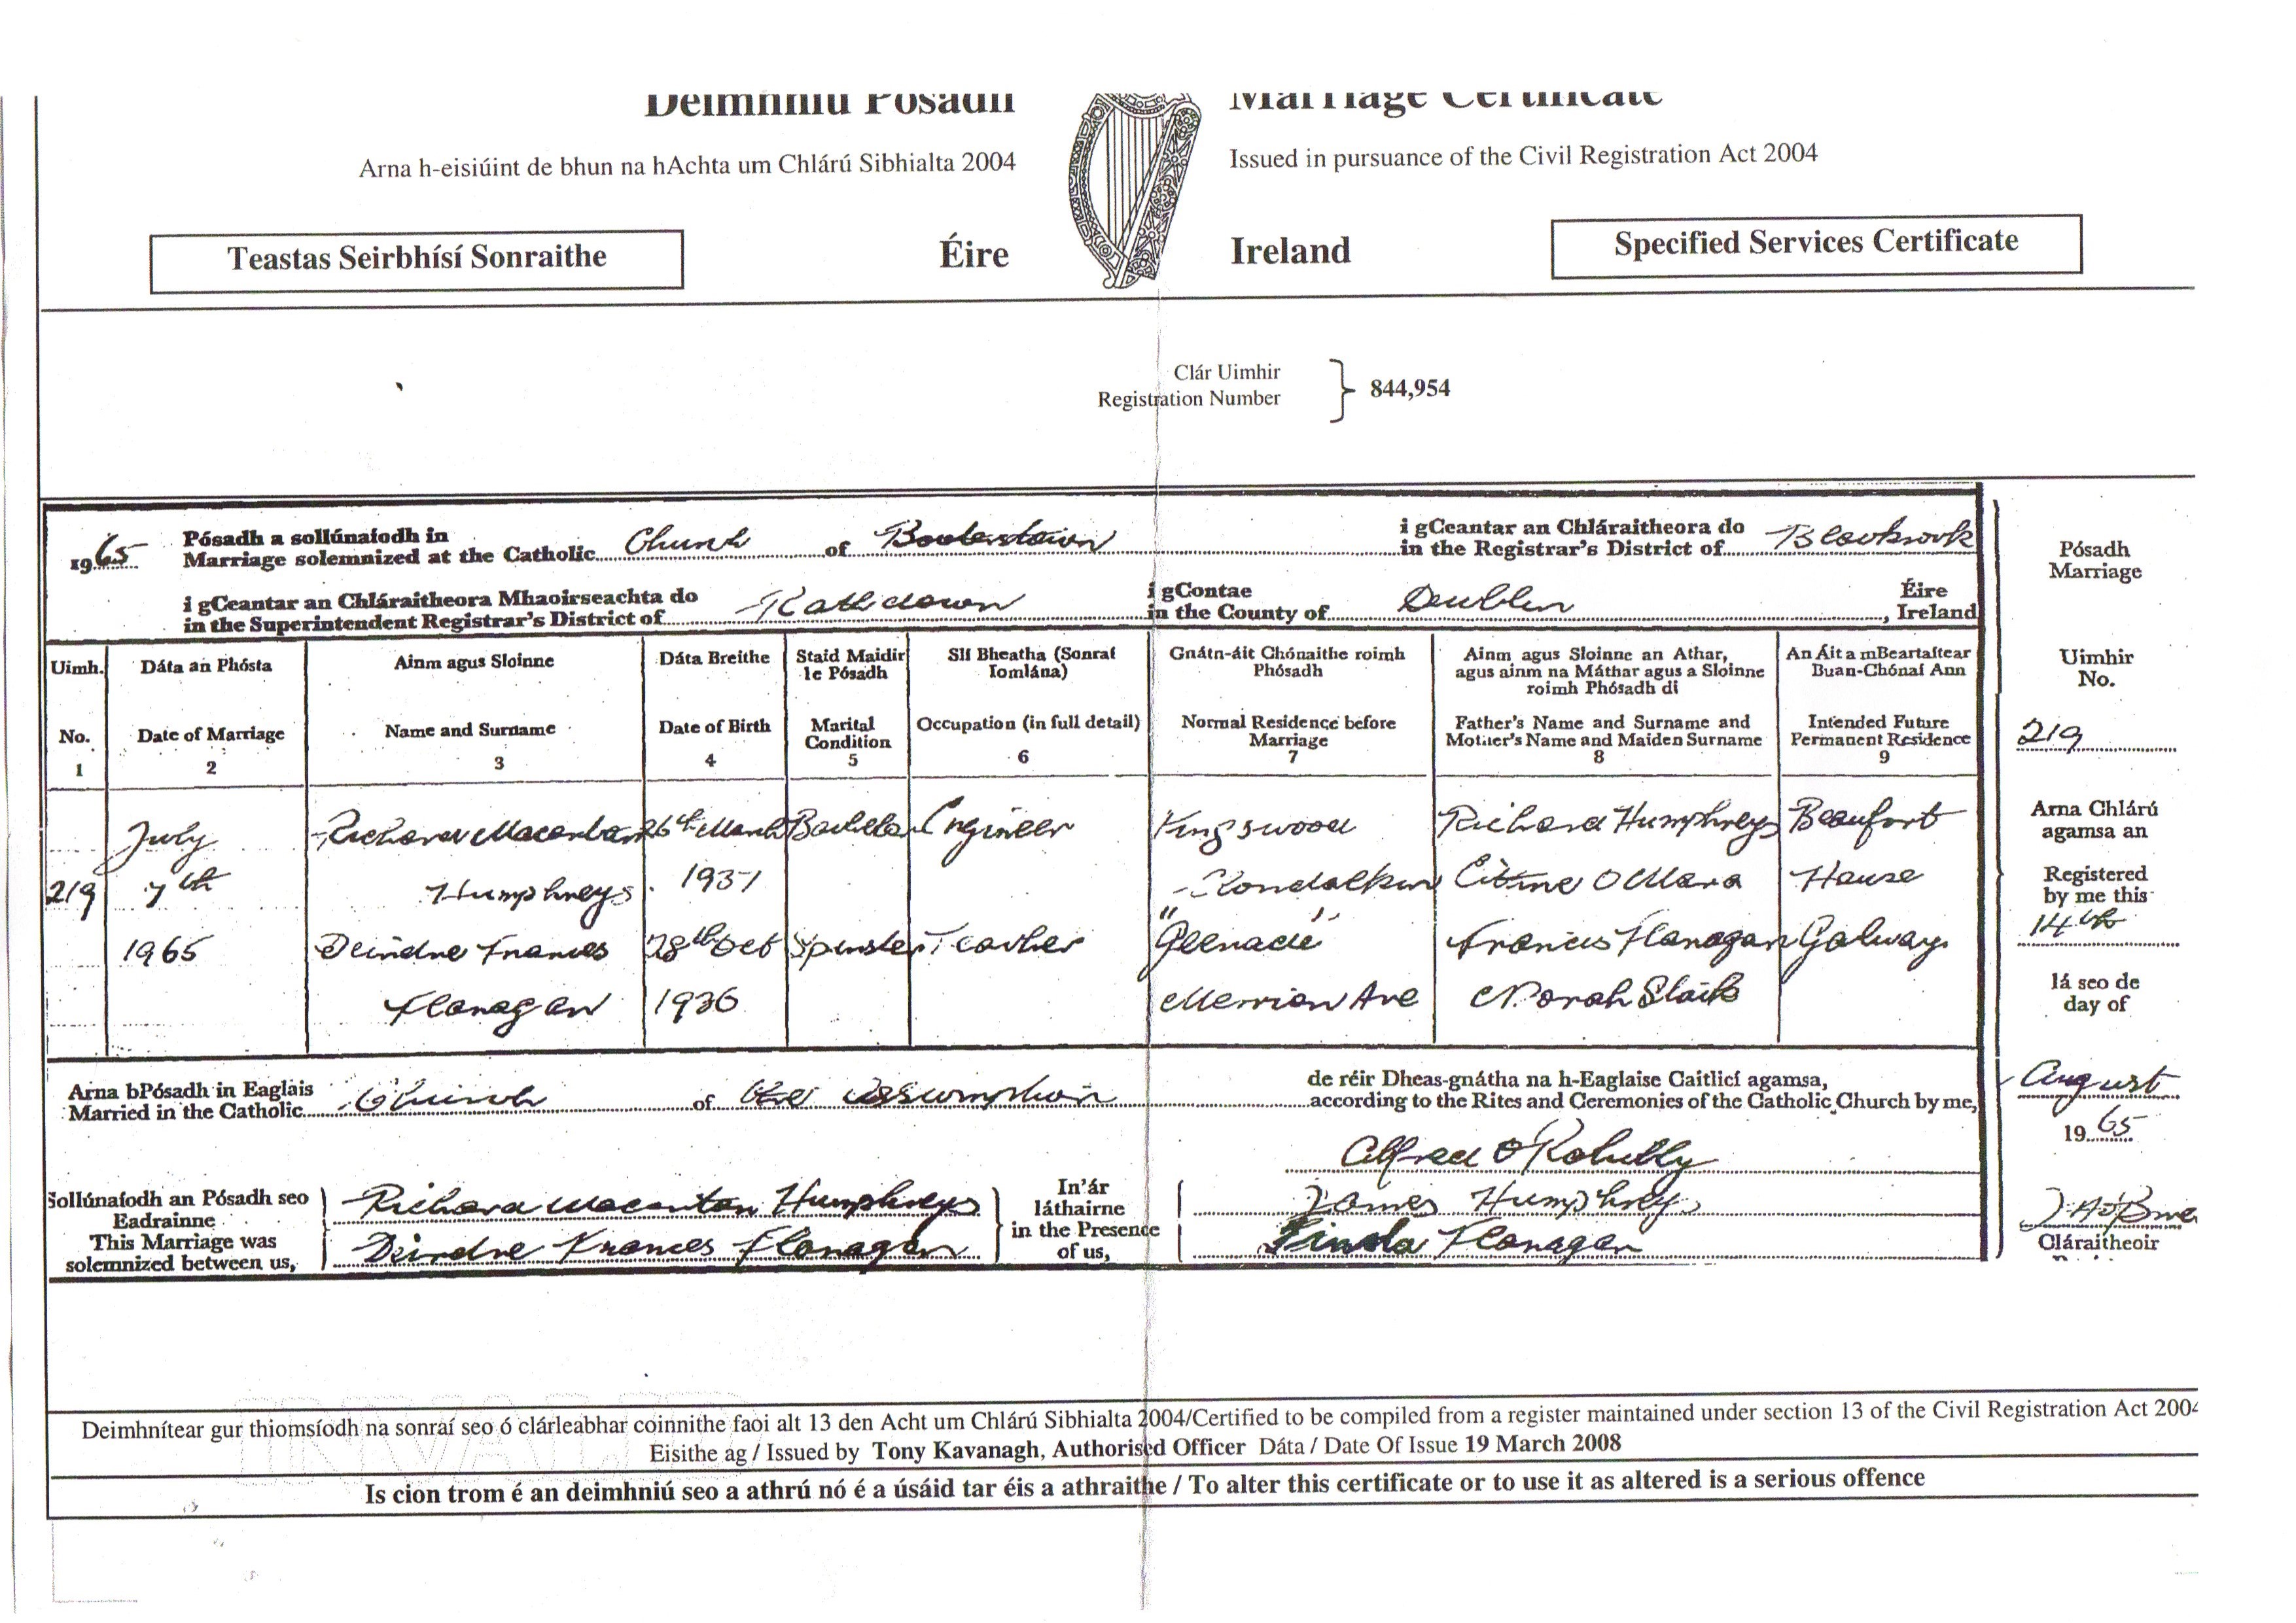 Deimhniú Pósadh
Marriage Certificate
Arna h-eisiúint de bhun na hAchta um Chlárú Sibhialta 2004
Issued in pursuance of the Civil Registration Act 2004
Teastas Seirbhísí Sonraithe
Éire
Ireland
Specified Services Certificate
Clár Uimhir
Registration Number
844,954
1965 Pósadh a sollúnaíodh in
Marriage solemnized at the Catholic Church of Booterstown
i gCeantar an Chláraitheora do
in the Registrar's District of Blackrock
i gCeantar an Chláraitheora Mhaoirseachta do
in the Superintendent Registrar's District of Rathdown
i gContae
in the County of Dublin
Éire
, Ireland
Uimh. Dáta an Phósta Ainm agus Sloinne Dáta Breithe Staid Maidir le Pósadh Slí Bheatha (Sonraí Iomlána) Gnátn-áit Chónaithe roimh Phósadh Ainm agus Sloinne an Athar, agus ainm na Máthar agus a Sloinne roimh Phósadh di An Áit a mBeartaítear Buan-Chónaí Ann
No. Date of Marriage Name and Surname Date of Birth Marital Condition Occupation (in full detail) Normal Residence before Marriage Father's Name and Surname and Mother's Name and Maiden Surname Intended Future Permanent Residence
1 2 3 4 5 6 7 8 9
July Richard Macartan 26th March Bachelor Engineer Kingswood Richard Humphreys Beaufort
219 7th Humphreys 1937 Clondalkin O'Mara House
1965 Deirdre Frances 28th Oct Spinster Teacher Francis Flanagan Galway
Flanagan 1936 Merrion Ave Norah
Arna bPósadh in Eaglais
Married in the Catholic Church of the Assumption
de réir Dheas-gnátha na h-Eaglaise Caitlicí agamsa,
according to the Rites and Ceremonies of the Catholic Church by me,
Alfred O'Rahilly
Sollúnaíodh an Pósadh seo
Eadrainne
This Marriage was
solemnized between us,
Richard Macartan Humphreys
Deirdre Frances Flanagan
In'ár
láthairne
in the Presence
of us,
James Humphreys
Finola Flanagan
Pósadh
Marriage
Uimhir
No.
219
Arna Chlárú
agamsa an
Registered
by me this
14th
lá seo de
day of
August
1965
Cláraitheoir
INVALID
Deimhnítear gur thiomsíodh na sonraí seo ó clárleabhar coinnithe faoi alt 13 den Acht um Chlárú Sibhialta 2004/Certified to be compiled from a register maintained under section 13 of the Civil Registration Act 2004
Eisithe ag / Issued by Tony Kavanagh, Authorised Officer Dáta / Date Of Issue 19 March 2008
Is cion trom é an deimhniú seo a athrú nó é a úsáid tar éis a athraithe / To alter this certificate or to use it as altered is a serious offence